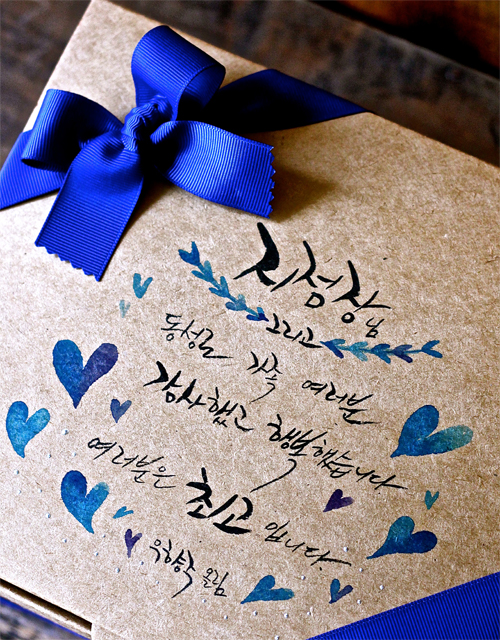 최성상님
그리고
동성로 가족 여러분
감사했고 행복했습니다
여러분은 최고입니다.
우형수 올림